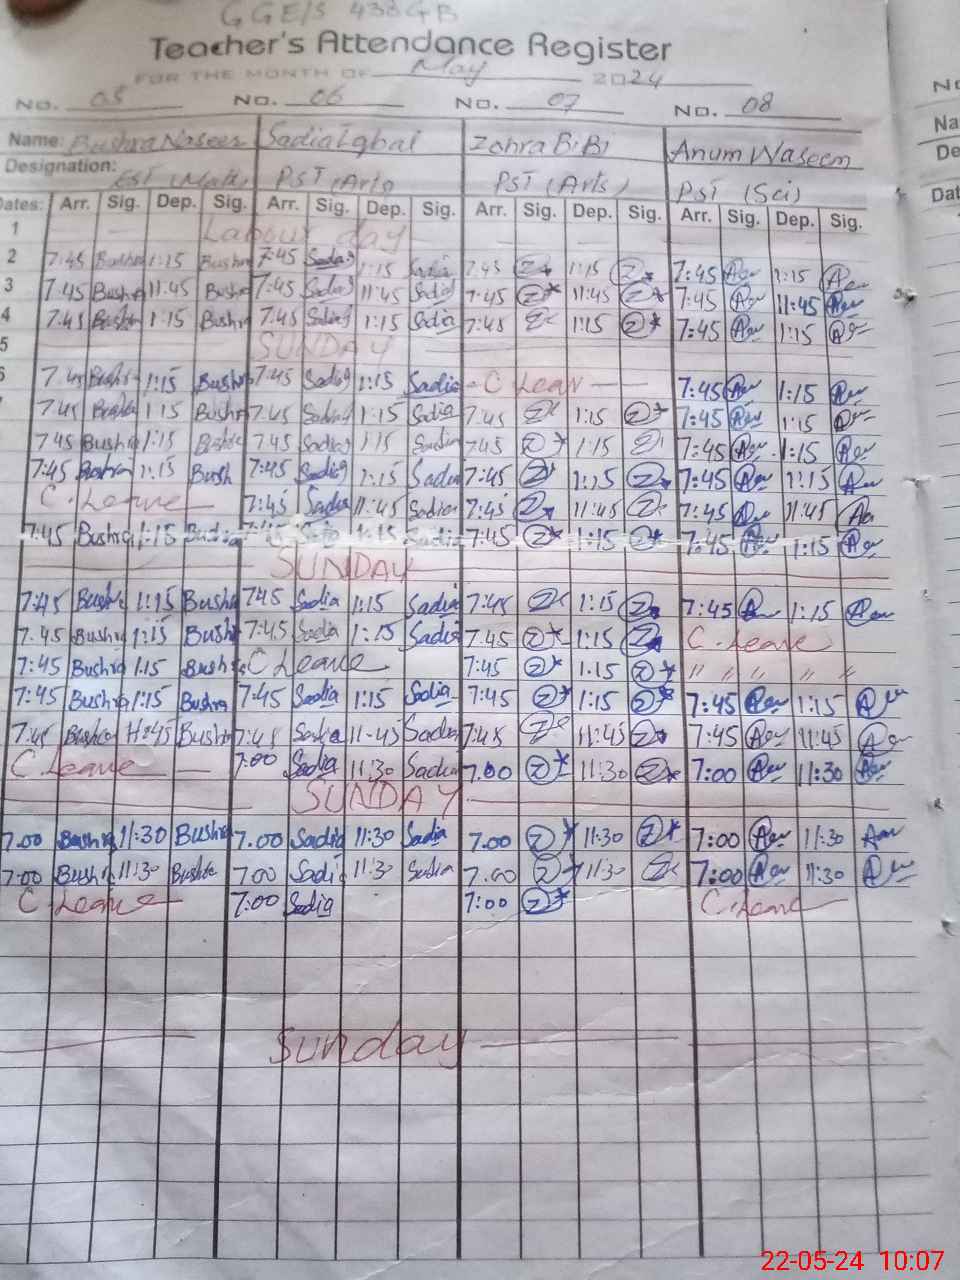 GGE/S 438GB
Teacher's Attendance Register
FOR THE MONTH OF May 2024
No. 05 No. 06 No. 07 No. 08
Name: Bushra Naseer Sadia Iqbal Zohra BiBi Anum Waseem
Designation: EST (Math) PST (Arts) PST (Arts) PST (Sci)
Dates: Arr. Sig. Dep. Sig. Arr. Sig. Dep. Sig. Arr. Sig. Dep. Sig. Arr. Sig. Dep. Sig.
1 Labour day
2 7:45 Bushra 1:15 Bushra 7:45 Sadia 1:15 Sadia 7:45 1:15 7:45 1:15
3 7:45 Bushra 11:45 Bushra 7:45 Sadia 11:45 Sadia 7:45 11:45 7:45 11:45
4 7:45 Bushra 1:15 Bushra 7:45 Sadia 1:15 Sadia 7:45 1:15 7:45 1:15
5 SUNDAY
7:45 Bushra 1:15 Bushra 7:45 Sadia 1:15 Sadia C Leav 7:45 1:15
7:45 Bushra 1:15 Bushra 7:45 Sadia 1:15 Sadia 7:45 1:15 7:45 1:15
7:45 Bushra 1:15 Bushra 7:45 Sadia 1:15 Sadia 7:45 1:15 7:45 1:15
7:45 Bushra 1:15 Bush 7:45 Sadia 1:15 Sadia 7:45 1:15 7:45 1:15
C. Leave 7:45 Sadia 11:45 Sadia 7:45 11:45 7:45 11:45
7:45 Bushra 1:15 Bushra 7:45 Sadia 1:15 Sadia 7:45 1:15 7:45 1:15
SUNDAY
7:45 Bushra 1:15 Bushra 7:45 Sadia 1:15 Sadia 7:45 1:15 7:45 1:15
7:45 Bushra 1:15 Bush 7:45 Sadia 1:15 Sadia 7:45 1:15 C. Leave
7:45 Bushra 1:15 Bush C Leave 7:45 1:15 " " " " "
7:45 Bushra 1:15 Bushra 7:45 Sadia 1:15 Sadia 7:45 1:15 7:45 1:15
7:45 Bushra 11:45 Bushra 7:45 Sadia 11-45 Sadia 7:45 11:45 7:45 11:45
C. Leave 7:00 Sadia 11:30 Sadia 7.00 11:30 7:00 11:30
SUNDAY
7.00 Bushra 11:30 Bushra 7.00 Sadia 11:30 Sadia 7.00 11:30 7:00 11:30
7:00 Bushra 11:30 Bushra 7.00 Sadi 11:30 Sadia 7.00 11:30 7:00 11:30
C. Leave 7:00 Sadia 7:00 C. Leave
Sunday
22-05-24 10:07